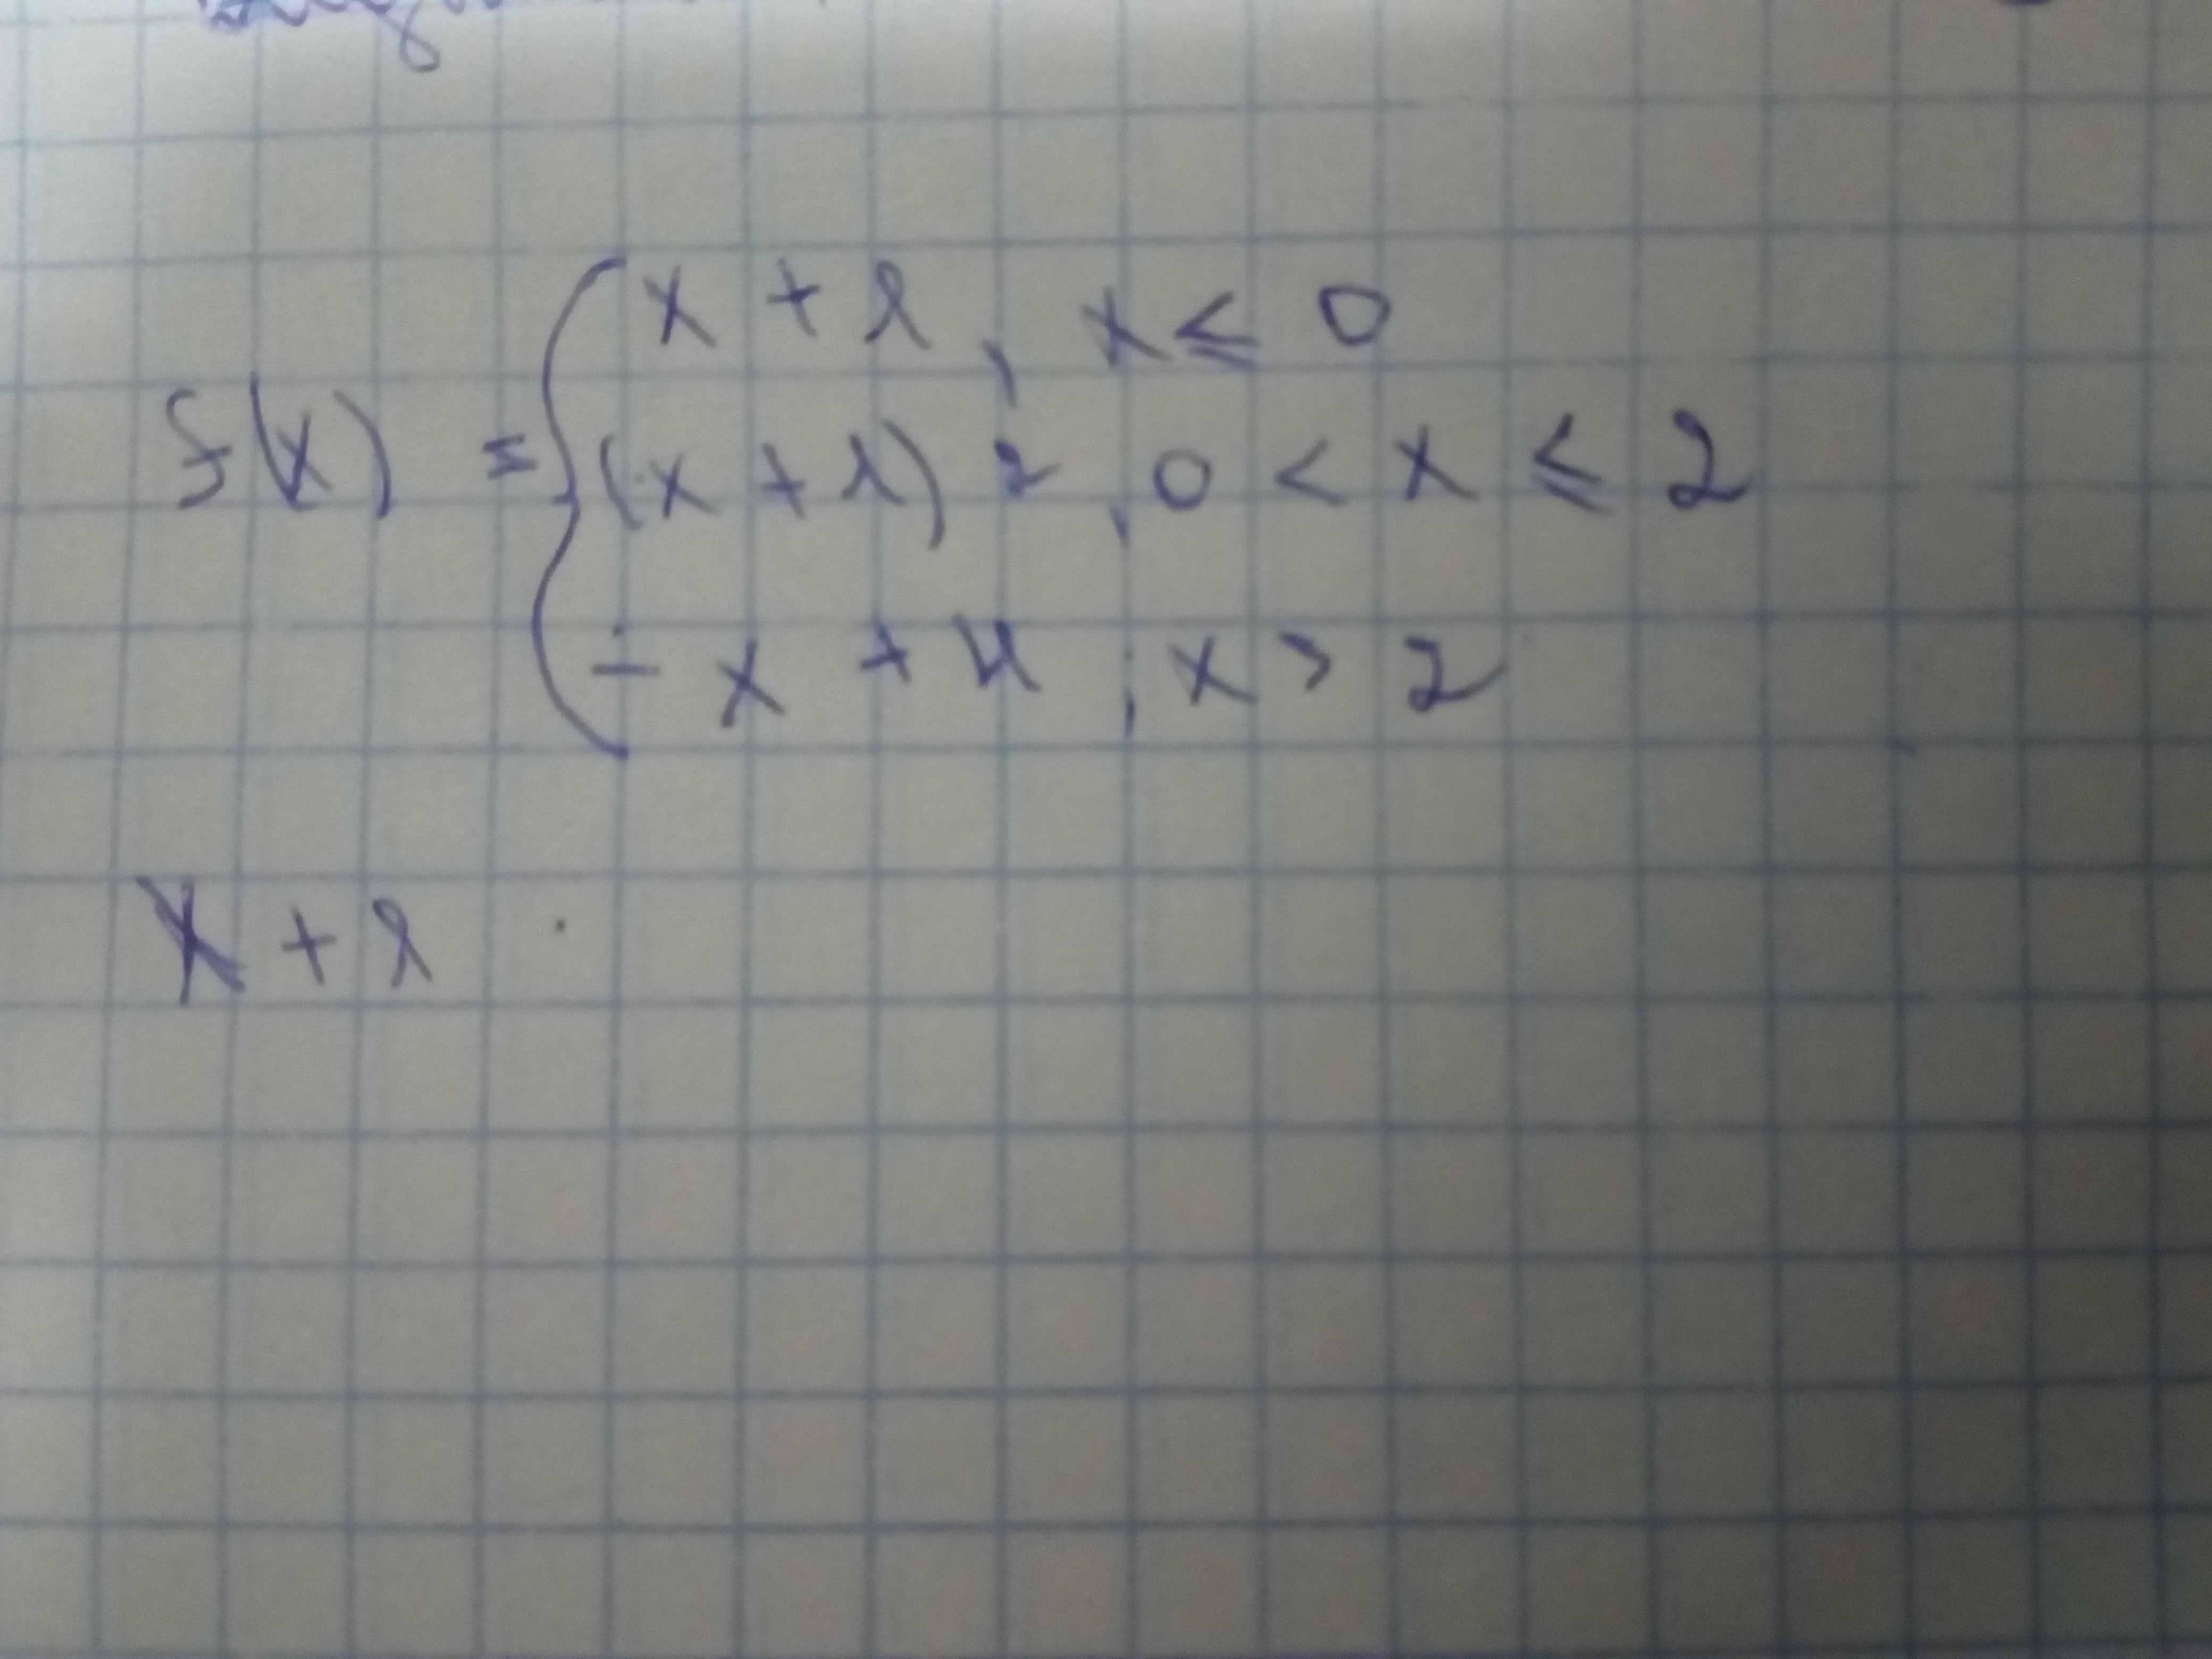 f(x) = { x + 1, x ≤ 0
(x + 1)², 0 < x ≤ 2
- x + 4, x > 2
x + 1